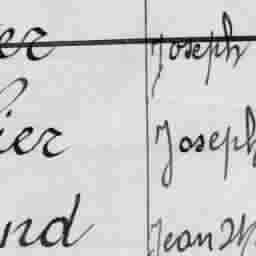 er Joseph
ier Joseph
nd Jean